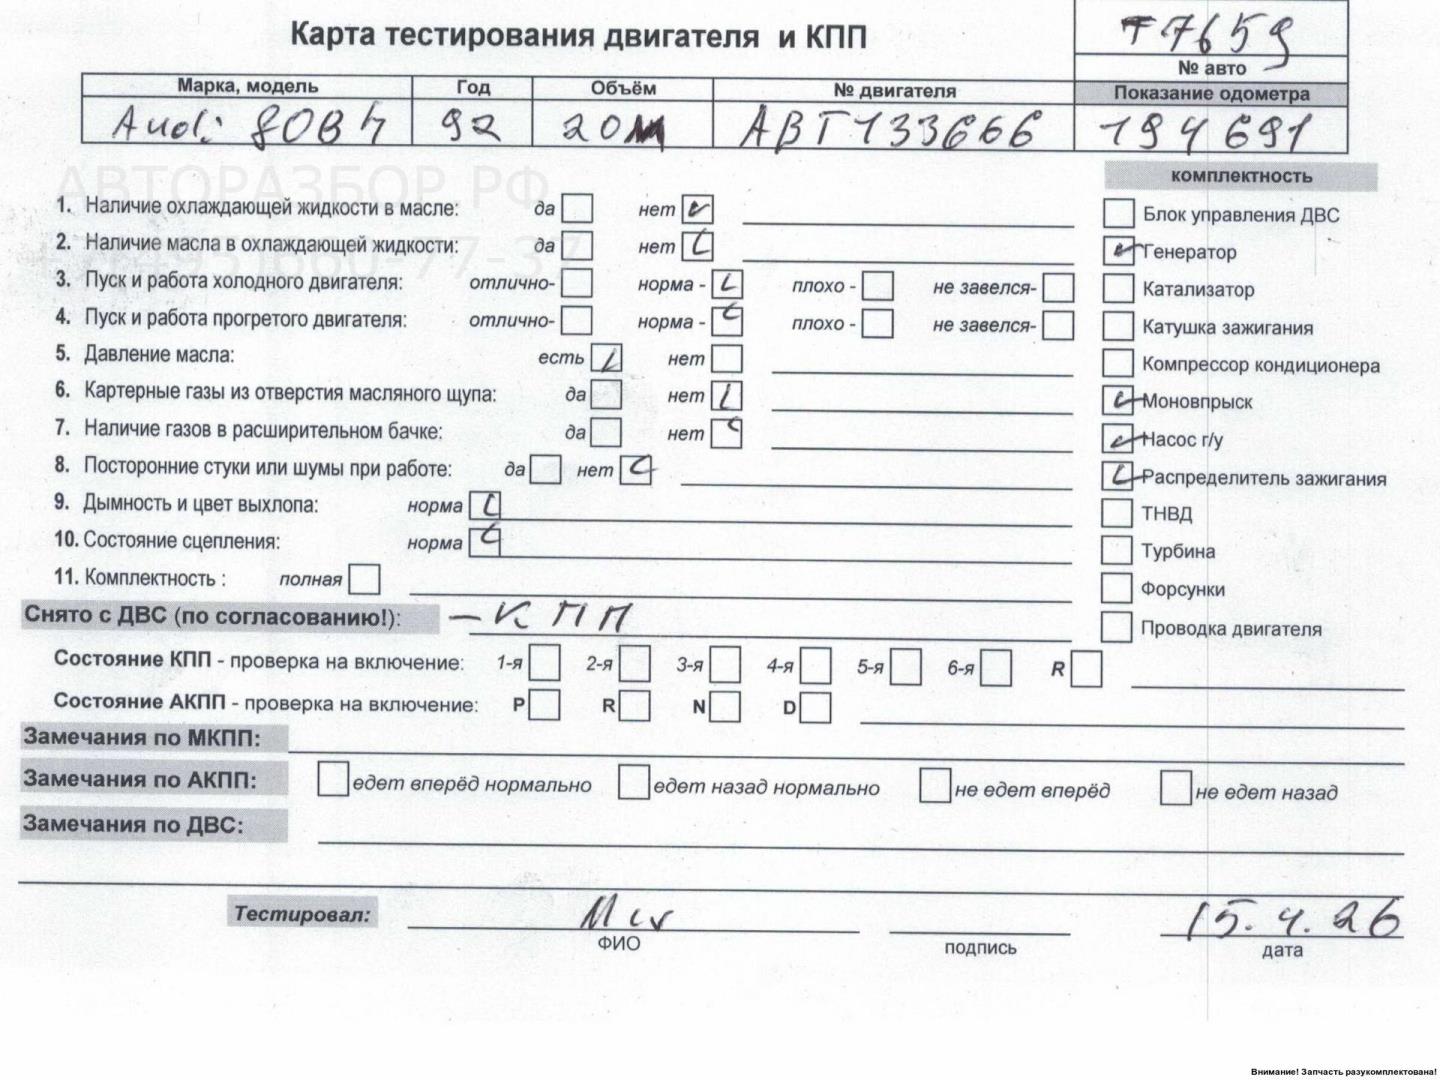 Карта тестирования двигателя и КПП
Т7659
№ авто
Марка, модель Год Объём № двигателя Показание одометра
Audi 80B4 92 20М АВТ133666 194691
АВТОРАЗБОР.РФ
+7(495)660-77-37
комплектность
1. Наличие охлаждающей жидкости в масле: да нет
Блок управления ДВС
2. Наличие масла в охлаждающей жидкости: да нет
Генератор
3. Пуск и работа холодного двигателя: отлично- норма - плохо - не завелся-
Катализатор
4. Пуск и работа прогретого двигателя: отлично- норма - плохо - не завелся-
Катушка зажигания
5. Давление масла: есть нет
Компрессор кондиционера
6. Картерные газы из отверстия масляного щупа: да нет
Моновпрыск
7. Наличие газов в расширительном бачке: да нет
Насос г/у
8. Посторонние стуки или шумы при работе: да нет
Распределитель зажигания
9. Дымность и цвет выхлопа: норма
ТНВД
10. Состояние сцепления: норма
Турбина
11. Комплектность : полная
Форсунки
Снято с ДВС (по согласованию!): – КПП
Проводка двигателя
Состояние КПП - проверка на включение: 1-я 2-я 3-я 4-я 5-я 6-я R
Состояние АКПП - проверка на включение: P R N D
Замечания по МКПП:
Замечания по АКПП: едет вперёд нормально едет назад нормально не едет вперёд не едет назад
Замечания по ДВС:
Тестировал: 15.4.26
ФИО подпись дата
Внимание! Запчасть разукомплектована!